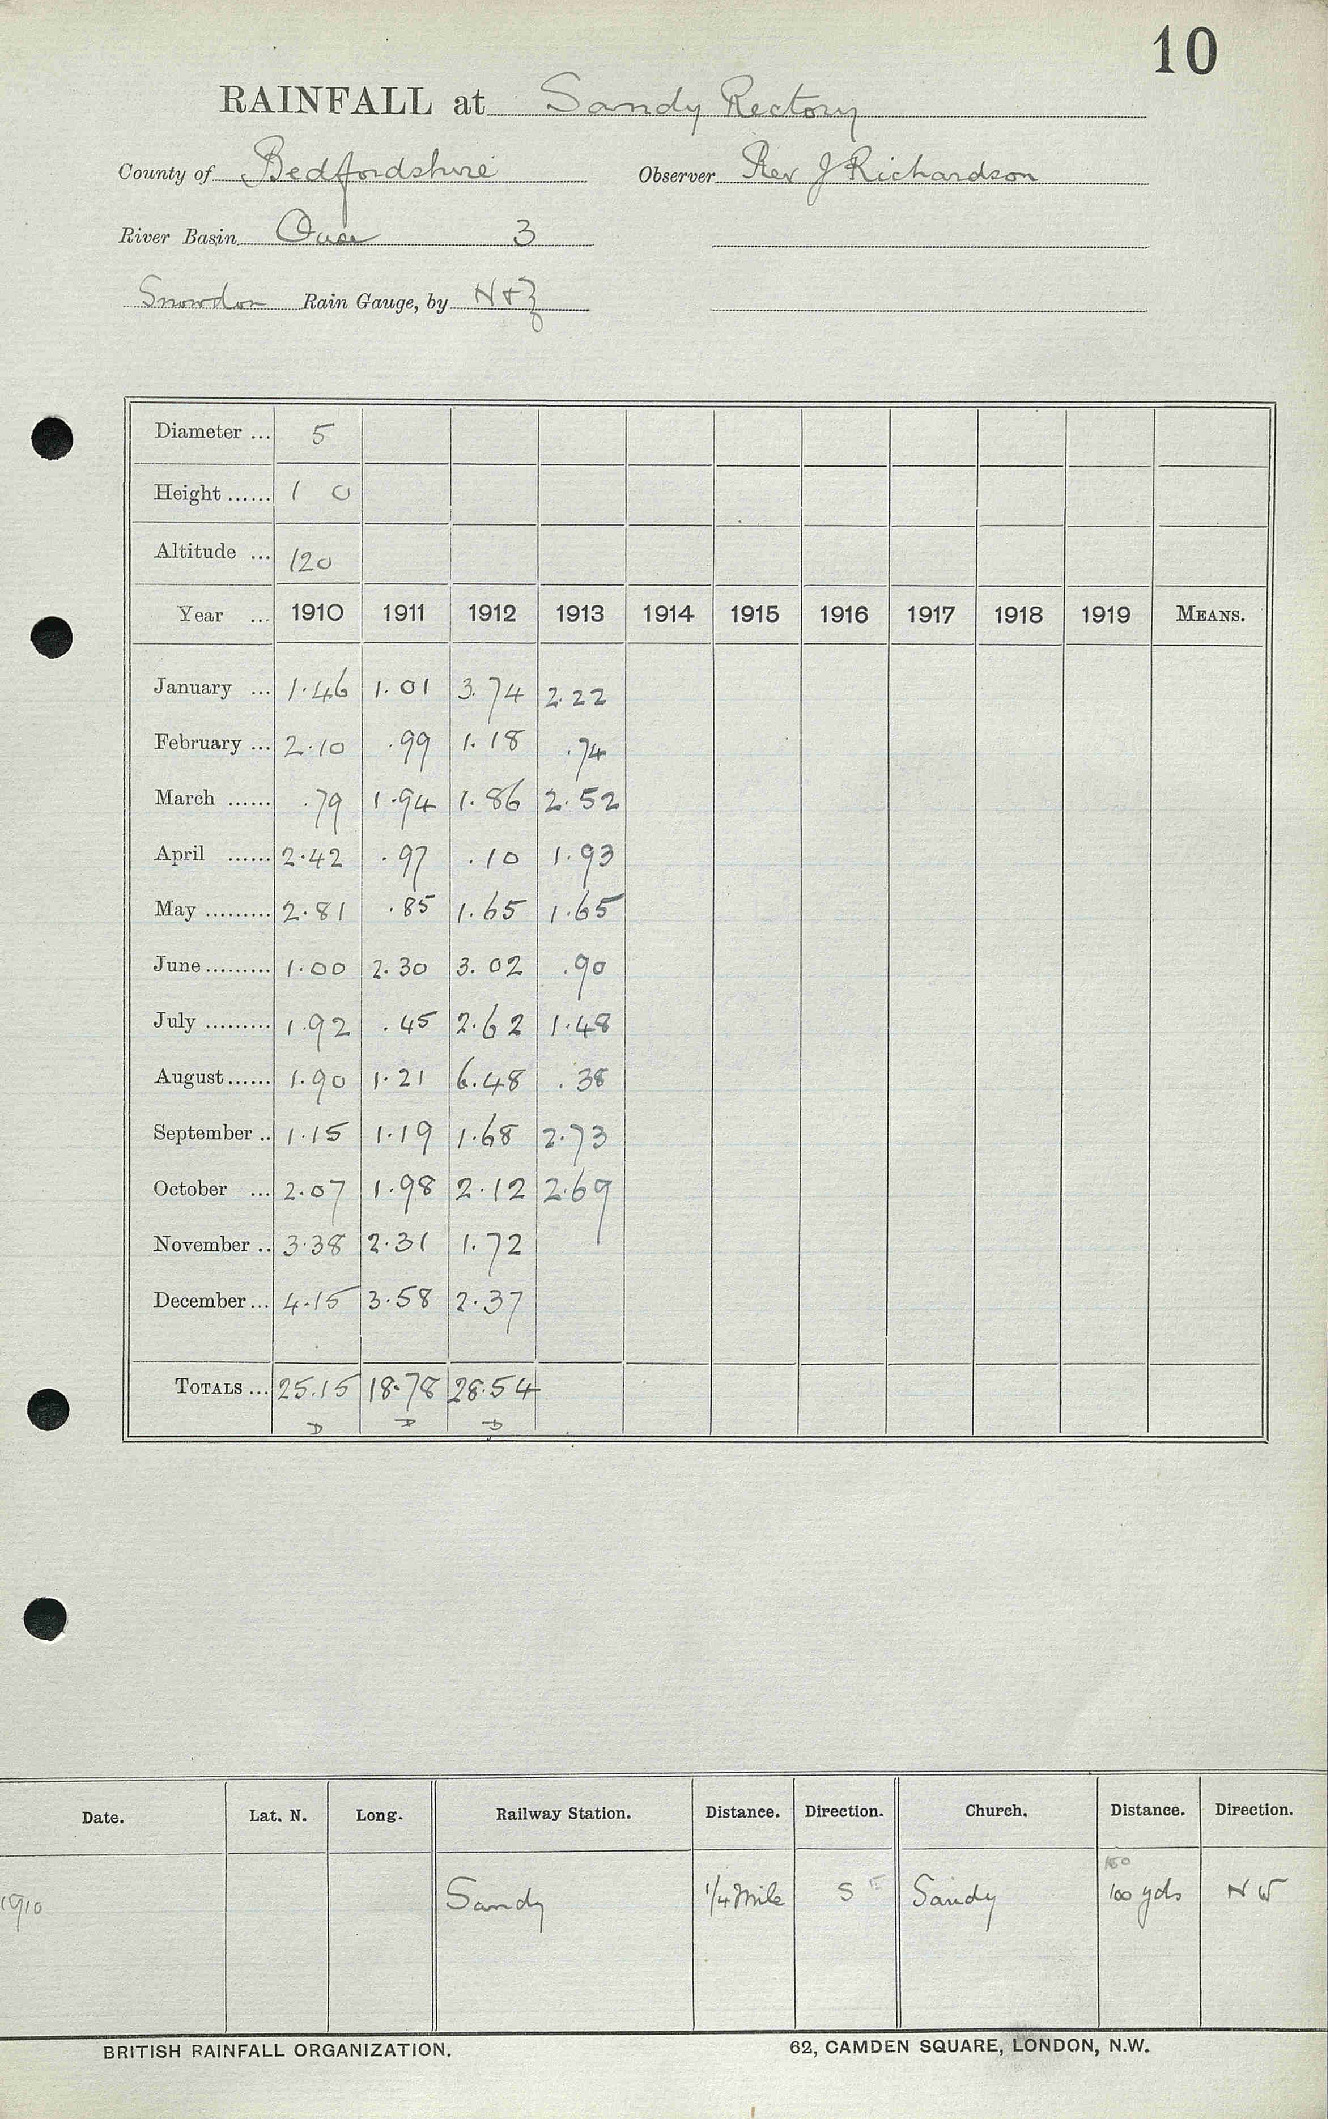 10
RAINFALL at Sandy Rectory
County of Bedfordshire Observer Rev J Richardson
River Basin Ouse 3
Snowdon Rain Gauge, by N & Z
Diameter ... 5
Height ...... 1 0
Altitude ... 120
Year ... 1910 1911 1912 1913 1914 1915 1916 1917 1918 1919 MEANS.
January ... 1.46 1.01 3.74 2.22
February ... 2.10 .99 1.18 .74
March ...... .79 1.94 1.86 2.52
April ...... 2.42 .97 .10 1.93
May ......... 2.81 .85 1.65 1.65
June ......... 1.00 2.30 3.02 .90
July ......... 1.92 .45 2.62 1.48
August ...... 1.90 1.21 6.48 .38
September .. 1.15 1.19 1.68 2.73
October ... 2.07 1.98 2.12 2.69
November .. 3.38 2.31 1.72
December ... 4.15 3.58 2.37
TOTALS ... 25.15 18.78 28.54
D D D
Date. Lat. N. Long. Railway Station. Distance. Direction. Church. Distance. Direction.
150
1910 Sandy 1/4 Mile S E Sandy 100 yds N W
BRITISH RAINFALL ORGANIZATION. 62, CAMDEN SQUARE, LONDON, N.W.